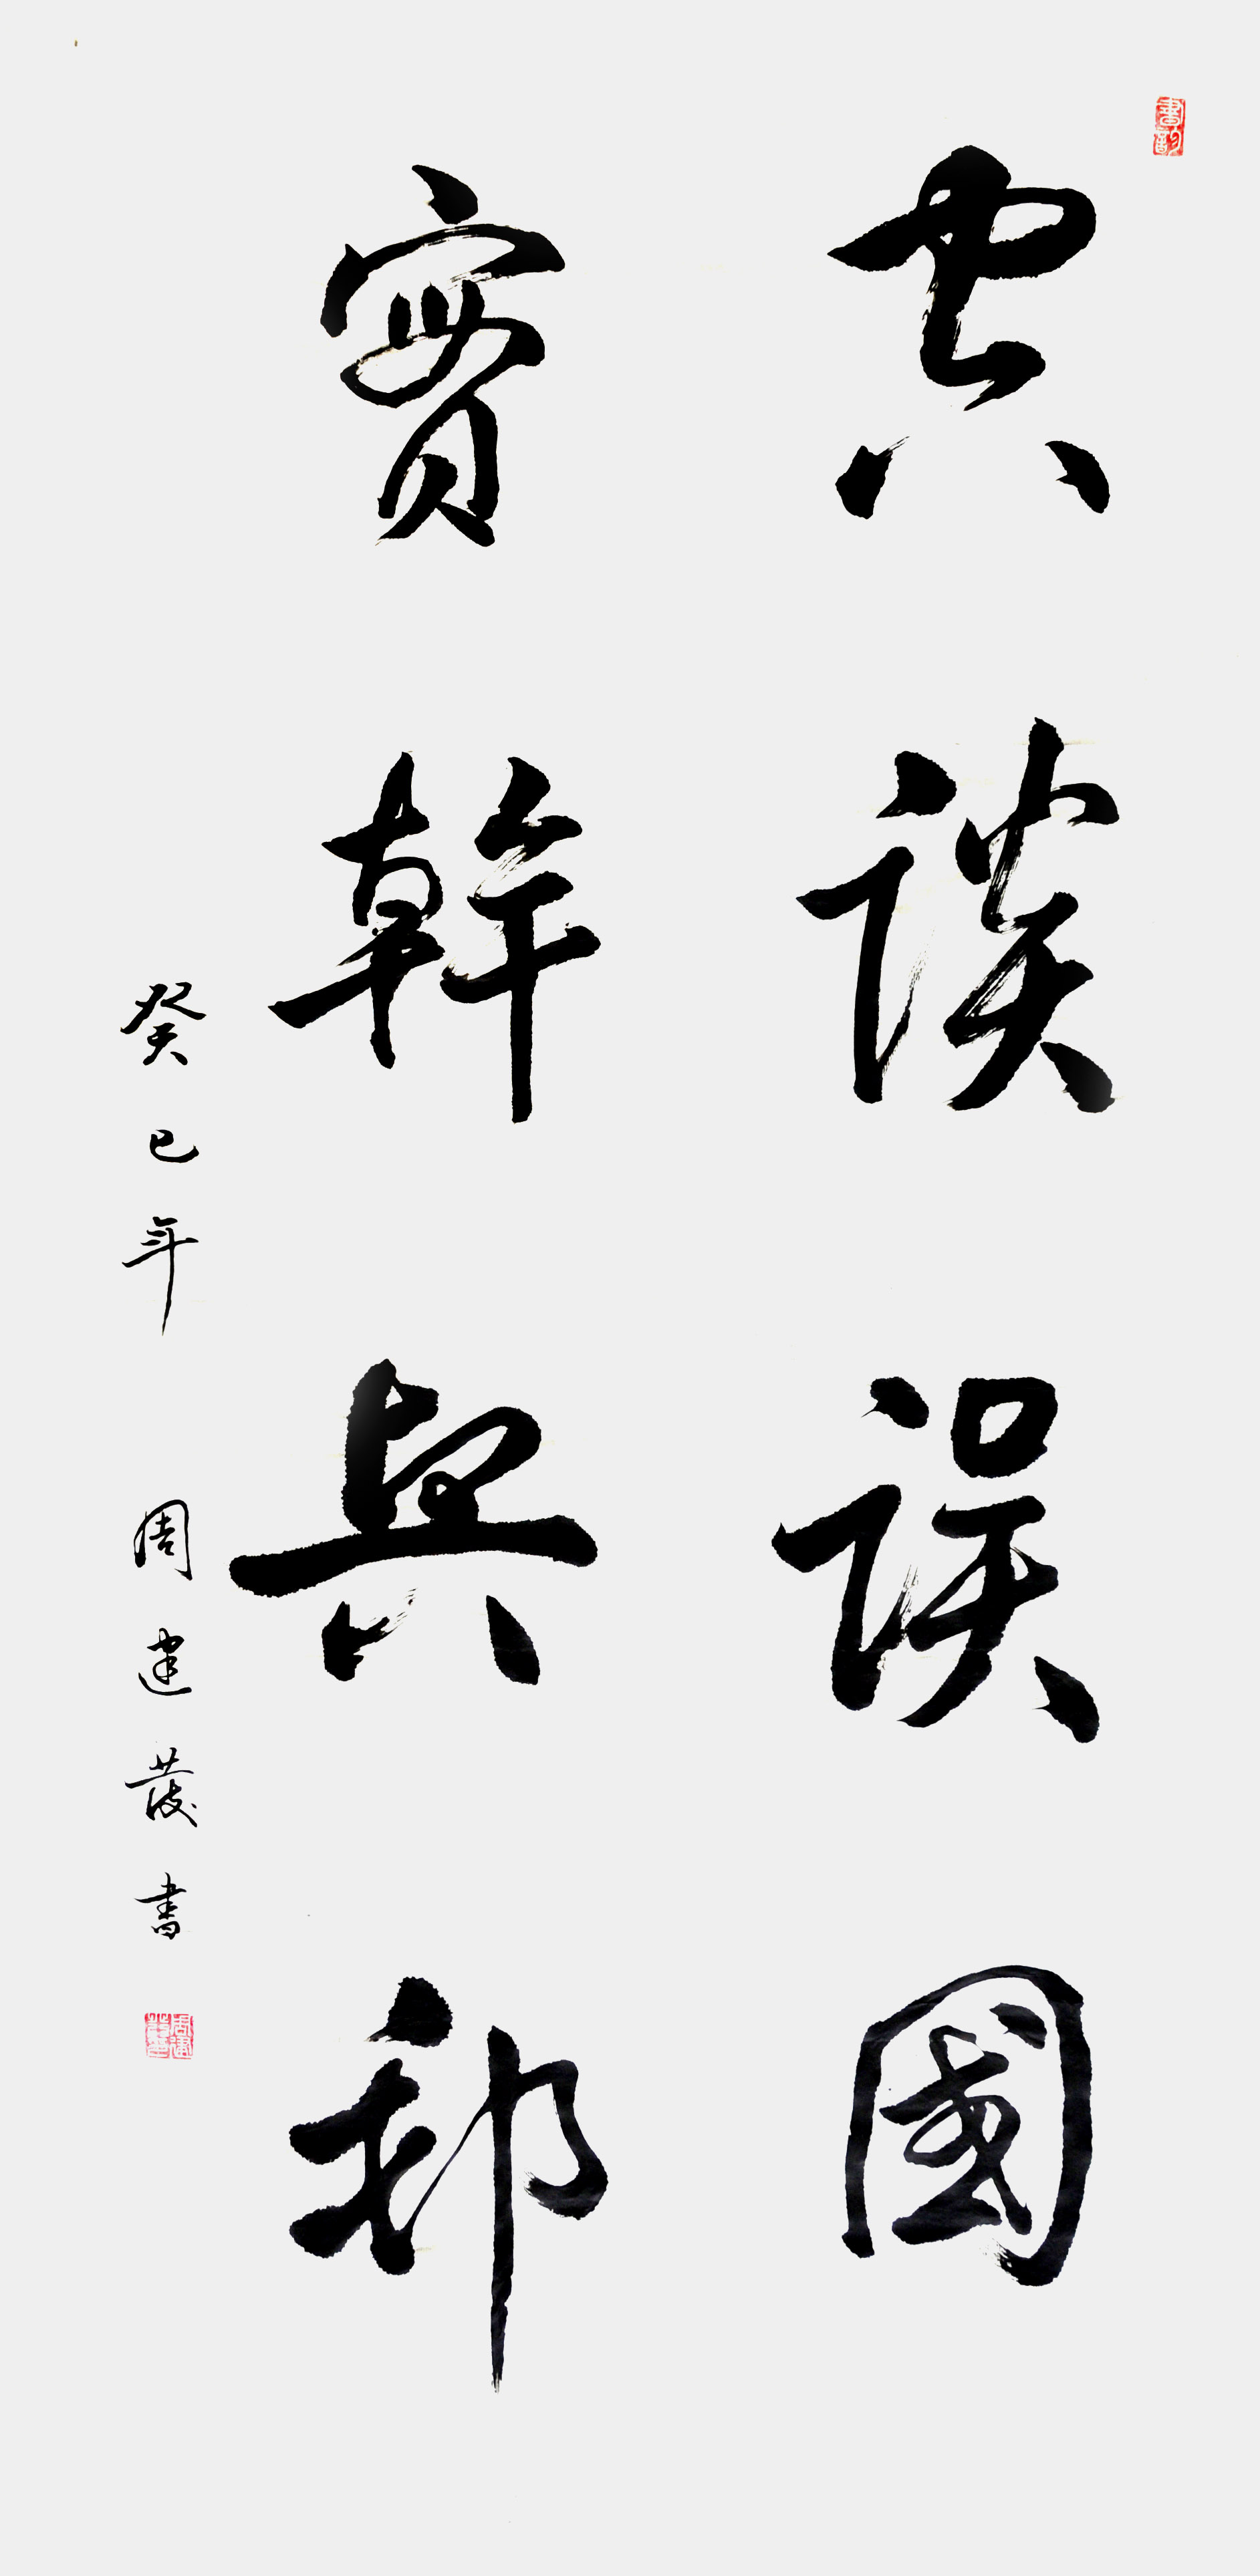 空談誤國
實幹興邦
癸巳年 周建發書
書韵